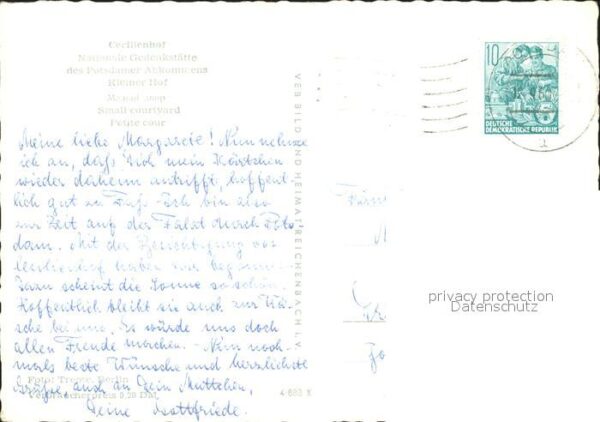 Cecilienhof
Nationale Gedenkstätte
des Potsdamer Abkommens
Kleiner Hof
Small courtyard
Petite cour
Meine liebe Margarete! Nun nehme
ich an, daß Dich mein Kärtchen
wieder daheim antrifft, hoffent-
lich gut zu Fuß. Ich bin also
zur Zeit auf der Fahrt durch Pots-
dam. Mit der Besichtigung von
Cecilienhof haben wir begonnen.
Dazu scheint die Sonne so schön.
Hoffentlich bleibt sie auch zur
sche bei uns. Es würde uns doch
allen Freude machen. Nun noch-
mals beste Wünsche und herzlichste
Grüße, auch an Dein Muttchen,
Deine Lottfriede.
Foto: Berlin
Verbraucherpreis 0,20 DM
4 683 K
VEB BILD UND HEIMAT REICHENBACH I. V.
10
DEUTSCHE
DEMOKRATISCHE REPUBLIK
privacy protection
Datenschutz